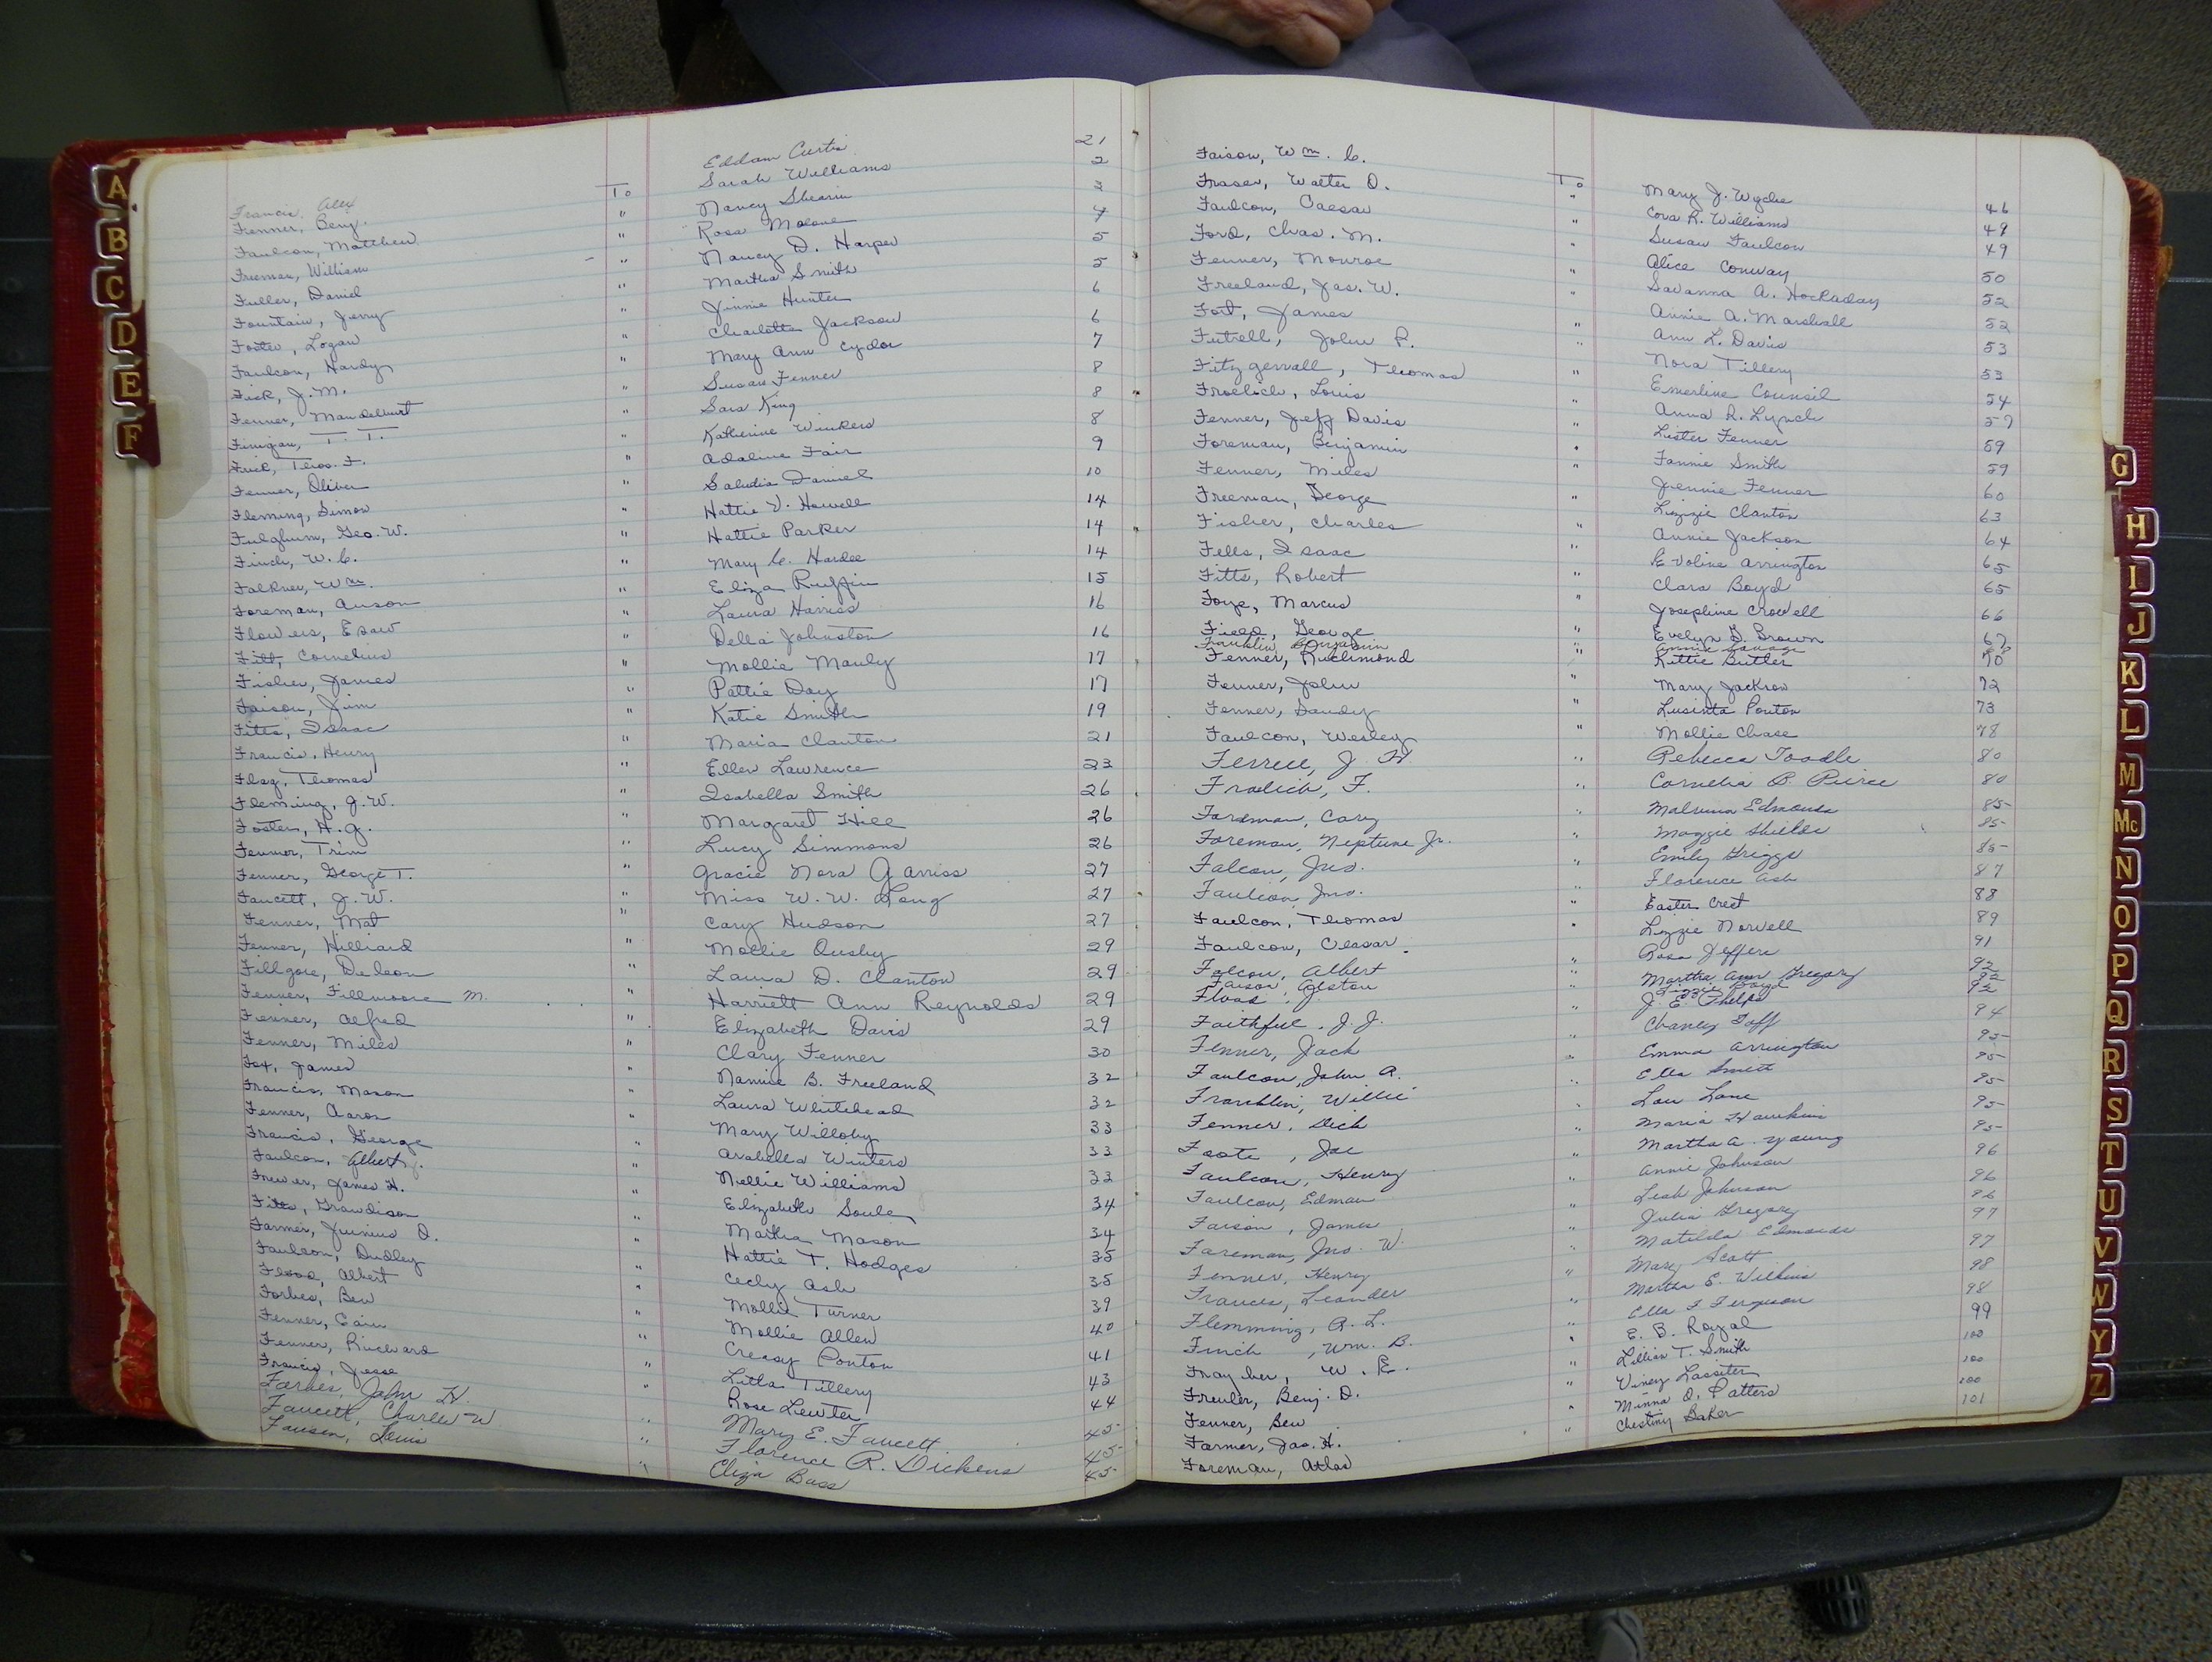 Francis, Alex To Eddam Curtis 21
Fenner, Benj. " Sarah Williams 2
Faulcon, Matthew " Nancy Shearin 3
Freeman, William " Rosa Malone 4
Fuller, Daniel " Nancy D. Harper 5
Fountain, Jerry " Martha Smith 5
Foster, Logan " Jinnie Hunter 6
Faulcon, Hardy " Charlotte Jackson 6
Fick, J. M. " Mary Ann Cyder 7
Fenner, Mandelburt " Susan Fenner 8
Finigan, T. T. " Sara King 8
Theo. F. " Katherine Winkers 8
Fenner, Oliver " Adaline Fair 9
Fleming, Simon " Saludia Daniel 10
Fulghum, Geo. W. " Hattie V. Howell 14
Finch, W. C. " Hattie Parker 14
Falkner, Wm. " Mary C. Hardee 14
Foreman, Anson " Eliza Ruffin 15
Flowers, Esaw " Laura Harriss 16
Fitt, Cornelius " Della Johnston 16
Fisher, James " Mollie Manly 17
Faison, Jim " Pattie Day 17
Fitts, Isaac " Katie Smith 19
Francis, Henry " Maria Clanton 21
Flag, Thomas " Ellen Lawrence 23
Fleming, J. W. " Isabella Smith 26
Foster, H. J. " Margaret Hill 26
Fenner, Trim " Lucy Simmons 26
Fenner, George T. " Gracie Nora Garriss 27
Faucett, J. W. " Miss W. W. Long 27
Fenner, Mat " Cary Hudson 27
Fenner, Hilliard " Mollie Ousby 29
Fillgore, Deleon " Laura D. Clanton 29
Fenner, Fillmoore M. " Harriett Ann Reynolds 29
Fenner, Alfred " Elizabeth Davis 29
Fenner, Miles " Clary Fenner 30
Fox, James " Nannie B. Freeland 32
Francis, Mason " Laura Whitehead 32
Fenner, Aaron " Mary Willoby 33
Francis, George " Arabella Winters 33
Faulcon, Albert J. " Nellie Williams 33
Frewer, James H. " Elizabeth Soule 34
Fitts, Grandison " Martha Mason 34
Farmer, Junius D. " Hattie T. Hodges 35
Faulcon, Dudley " Cecly Ash 35
Flood, Albert " Mollie Turner 39
Forbes, Ben " Mollie Allen 40
Fenner, Cain " Creasy Ponton 41
Fenner, Richard " Litla Tillery 43
Francis, Jesse " Rose Lewter 44
Forbes, John H. " Mary E. Faucett 45
Faucett, Charles W. " Florence R. Dickens 45
Fausen, Louis " Eliza Bass 45
Faison, Wm. C. To Mary J. Wyche 46
Fraser, Walter D. " Cora R. Williams 49
Faulcon, Caesar " Susan Faulcon 49
Ford, Chas. M. " Alice Conway 50
Fenner, Monroe " Savanna A. Hockaday 52
Freeland, Jas. W. " Annie A. Marshall 52
Fort, James " Ann L. Davis 53
Futrell, John R. " Nora Tillery 53
Fitzgerrall, Thomas " Emerline Counsil 54
Froelich, Louis " Anna R. Lynch 57
Fenner, Jeff Davis " Lister Fenner 59
Foreman, Benjamin " Fannie Smith 59
Fenner, Miles " Jennie Fenner 60
Freeman, George " Lizzie Clanton 63
Fisher, Charles " Annie Jackson 64
Fells, Isaac " Evoline Arrington 65
Fitts, Robert " Clara Boyd 65
Foye, Marcus " Josephine Crowell 66
Field, George " Evelyn G. Brown 67
Franklin, Benjamin " Annie Savage
Fenner, Richmond " Kittie Butler 70
Fenner, John " Mary Jackson 72
Fenner, Dandy " Lusinta Ponton 73
Faulcon, Wesley " Mollie Chase 78
Ferrell, J. H " Rebecca Toodle 80
Frolich, F. " Cornelia B. Pierce 80
Foreman, Cary " Malvina Edmonds 85
Foreman, Neptune Jr. " Maggie Shields 85
Falcon, Jno. " Emily Griggs 85
Faulcon, Jno. " Florence Ash 87
Faulcon, Thomas " Easter Crest 88
Faulcon, Ceasar " Lizzie Norvell 89
Falcon, Albert " Rosa Jeffers 91
Faison, Alston " Martha Ann Gregory 92
Flood, J. " Lizzie Boyd 92
Faithful, J. J. " J. E. Phelps 92
Fenner, Jack " Chaney Goff 94
Faulcon, John A. " Emma Arrington 95
Franklin, Willie " Ella Smith 95
Fenner, Dick " Lou Lane 95
Foote, Joe " Maria Hawkins 95
Faulcon, Henry " Martha A. Young 95
Faulcon, Edman " Annie Johnson 96
Faison, James " Leah Johnson 96
Foreman, Jno. W. " Julia Gregory 96
Fenner, Henry " Matilda Edmonds 97
Frances, Leander " Mary Scott 97
Flemming, R. L. " Martha E. Wilkins 98
Finch, Wm. B. " Ella F Ferguson 98
Frayher, W. E. " E. B. Royal 99
Freuler, Benj. D. " Lillian T. Smith 100
Fenner, Ben " Viney Lassiter 100
Farmer, Jas. H. " Minna D. Patters 100
Foreman, Atlas " Chestiny Baker 101
A
B
C
D
E
F
G
H
I
J
K
L
M
Mc
N
O
P
Q
R
S
T
U
V
W
Y
Z